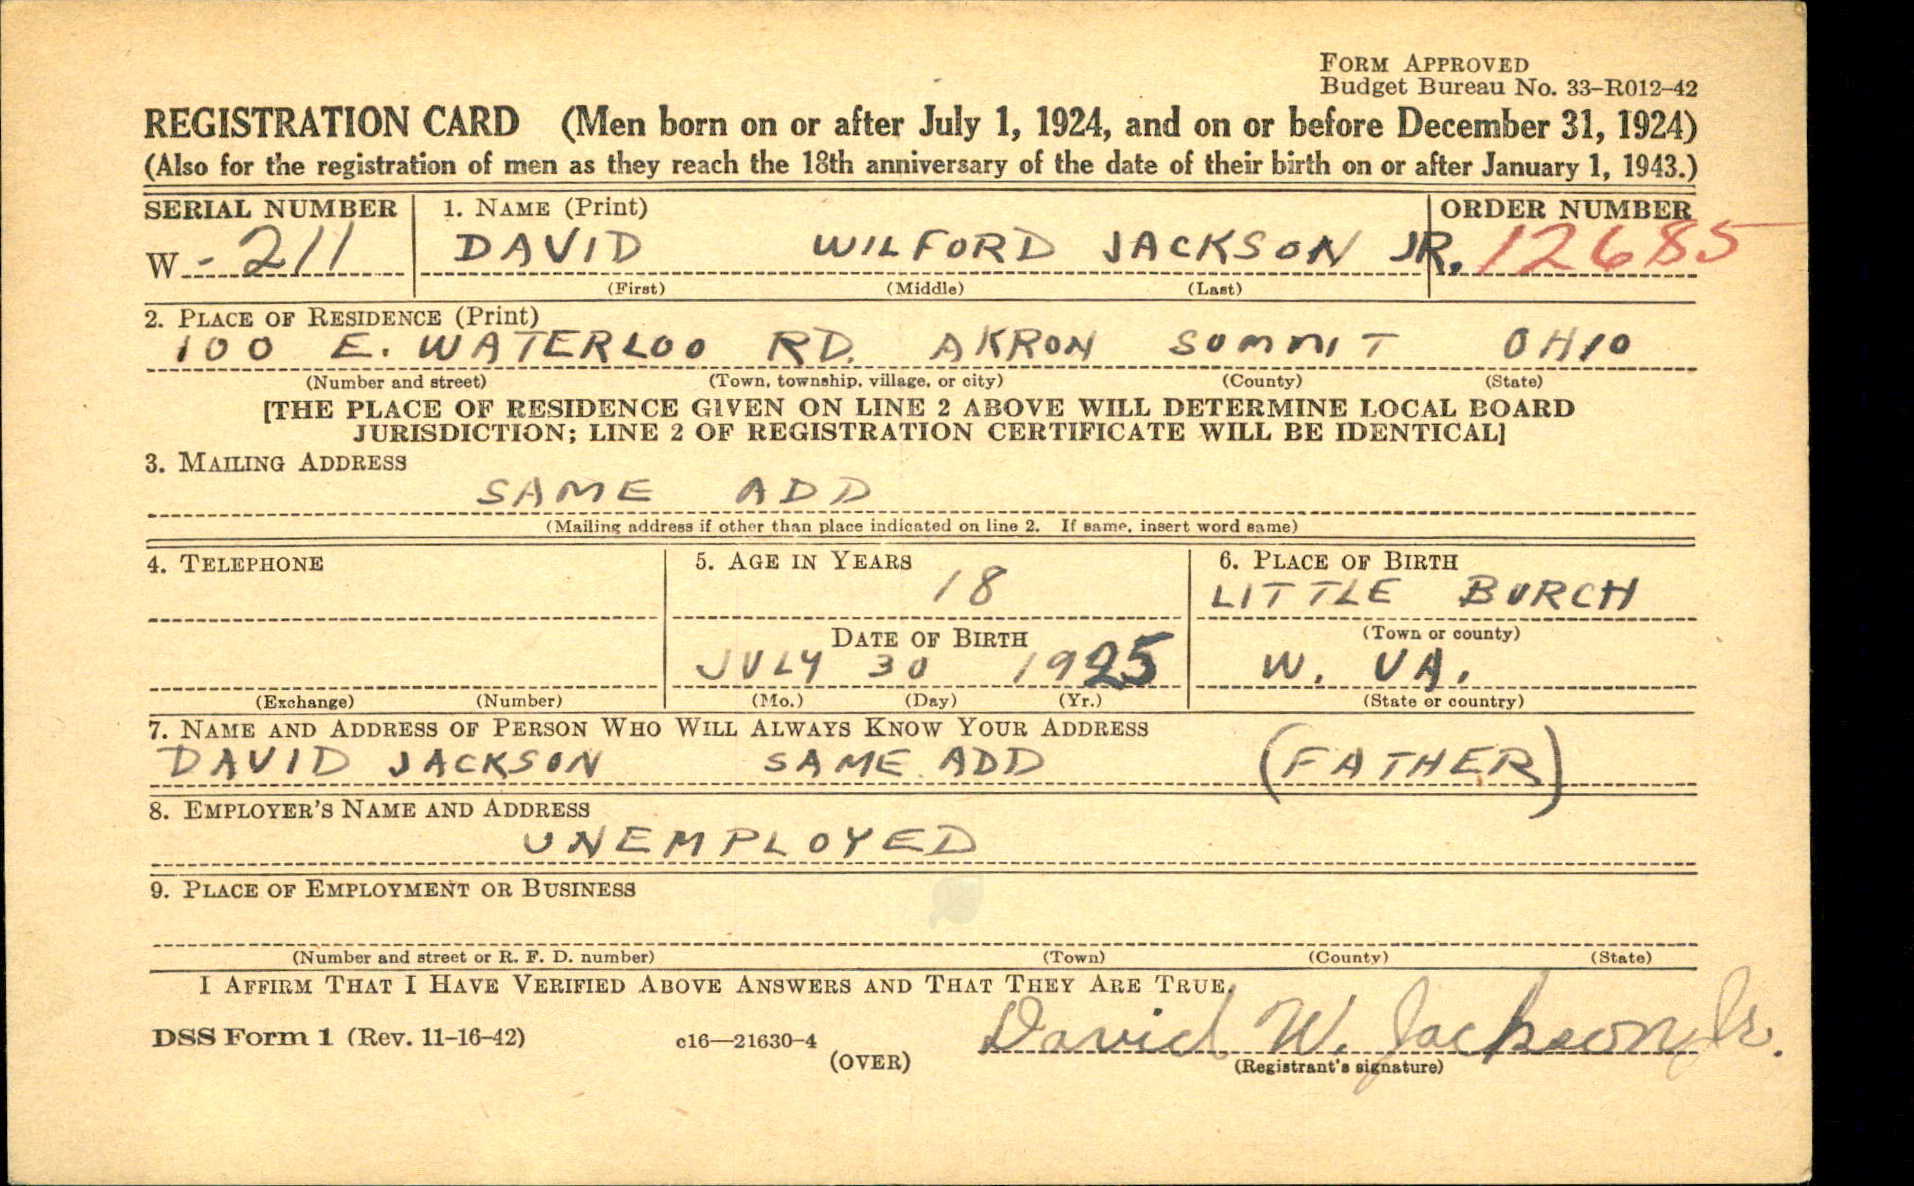 FORM APPROVED
Budget Bureau No. 33-R012-42
REGISTRATION CARD (Men born on or after July 1, 1924, and on or before December 31, 1924)
(Also for the registration of men as they reach the 18th anniversary of the date of their birth on or after January 1, 1943.)
SERIAL NUMBER 1. NAME (Print) ORDER NUMBER
W - 211 DAVID WILFORD JACKSON JR. 12685
(First) (Middle) (Last)
2. PLACE OF RESIDENCE (Print)
100 E. WATERLOO RD. AKRON SUMMIT OHIO
(Number and street) (Town, township, village, or city) (County) (State)
[THE PLACE OF RESIDENCE GIVEN ON LINE 2 ABOVE WILL DETERMINE LOCAL BOARD
JURISDICTION; LINE 2 OF REGISTRATION CERTIFICATE WILL BE IDENTICAL]
3. MAILING ADDRESS
SAME ADD
(Mailing address if other than place indicated on line 2. If same, insert word same)
4. TELEPHONE 5. AGE IN YEARS 6. PLACE OF BIRTH
18 LITTLE BURCH
DATE OF BIRTH (Town or county)
JULY 30 1925 W. VA.
(Exchange) (Number) (Mo.) (Day) (Yr.) (State or country)
7. NAME AND ADDRESS OF PERSON WHO WILL ALWAYS KNOW YOUR ADDRESS
DAVID JACKSON SAME ADD (FATHER)
8. EMPLOYER'S NAME AND ADDRESS
UNEMPLOYED
9. PLACE OF EMPLOYMENT OR BUSINESS
(Number and street or R. F. D. number) (Town) (County) (State)
I AFFIRM THAT I HAVE VERIFIED ABOVE ANSWERS AND THAT THEY ARE TRUE.
DSS Form 1 (Rev. 11-16-42) c16—21630-4 David W. Jackson Jr.
(OVER) (Registrant's signature)